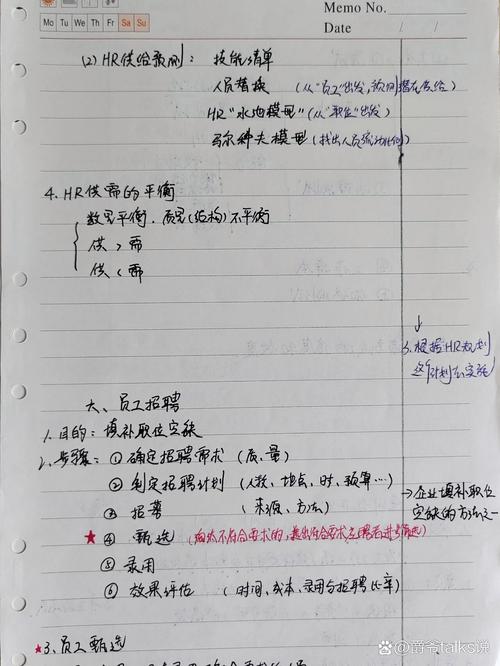 Memo No.
Mo Tu We Th Fr Sa Su
Date / /
(2) HR供给预测：技能清单
人员替换（从"员工"出发，预测潜在供给）
HR"水池模型"（从"职位"出发）
马尔科夫模型（找出人员流动规律）
4. HR供需的平衡
数量平衡，质量(结构)不平衡
供 > 需
供 < 需
↓
3. 根据HR规划
计划去实施
六、员工招聘
1. 目的：填补职位空缺
2. 步骤：① 确定招聘需求（质、量）
② 制定招聘计划（人数、地点、时、预算…）
→企业填补职位
空缺的方法之一
③ 招募（来源、方法）
★④ 甄选（淘汰不符合要求的，
⑤ 录用
⑥ 效果评估（时间、成本、录用与招聘比率）
★3. 员工甄选
@爵爷talks说